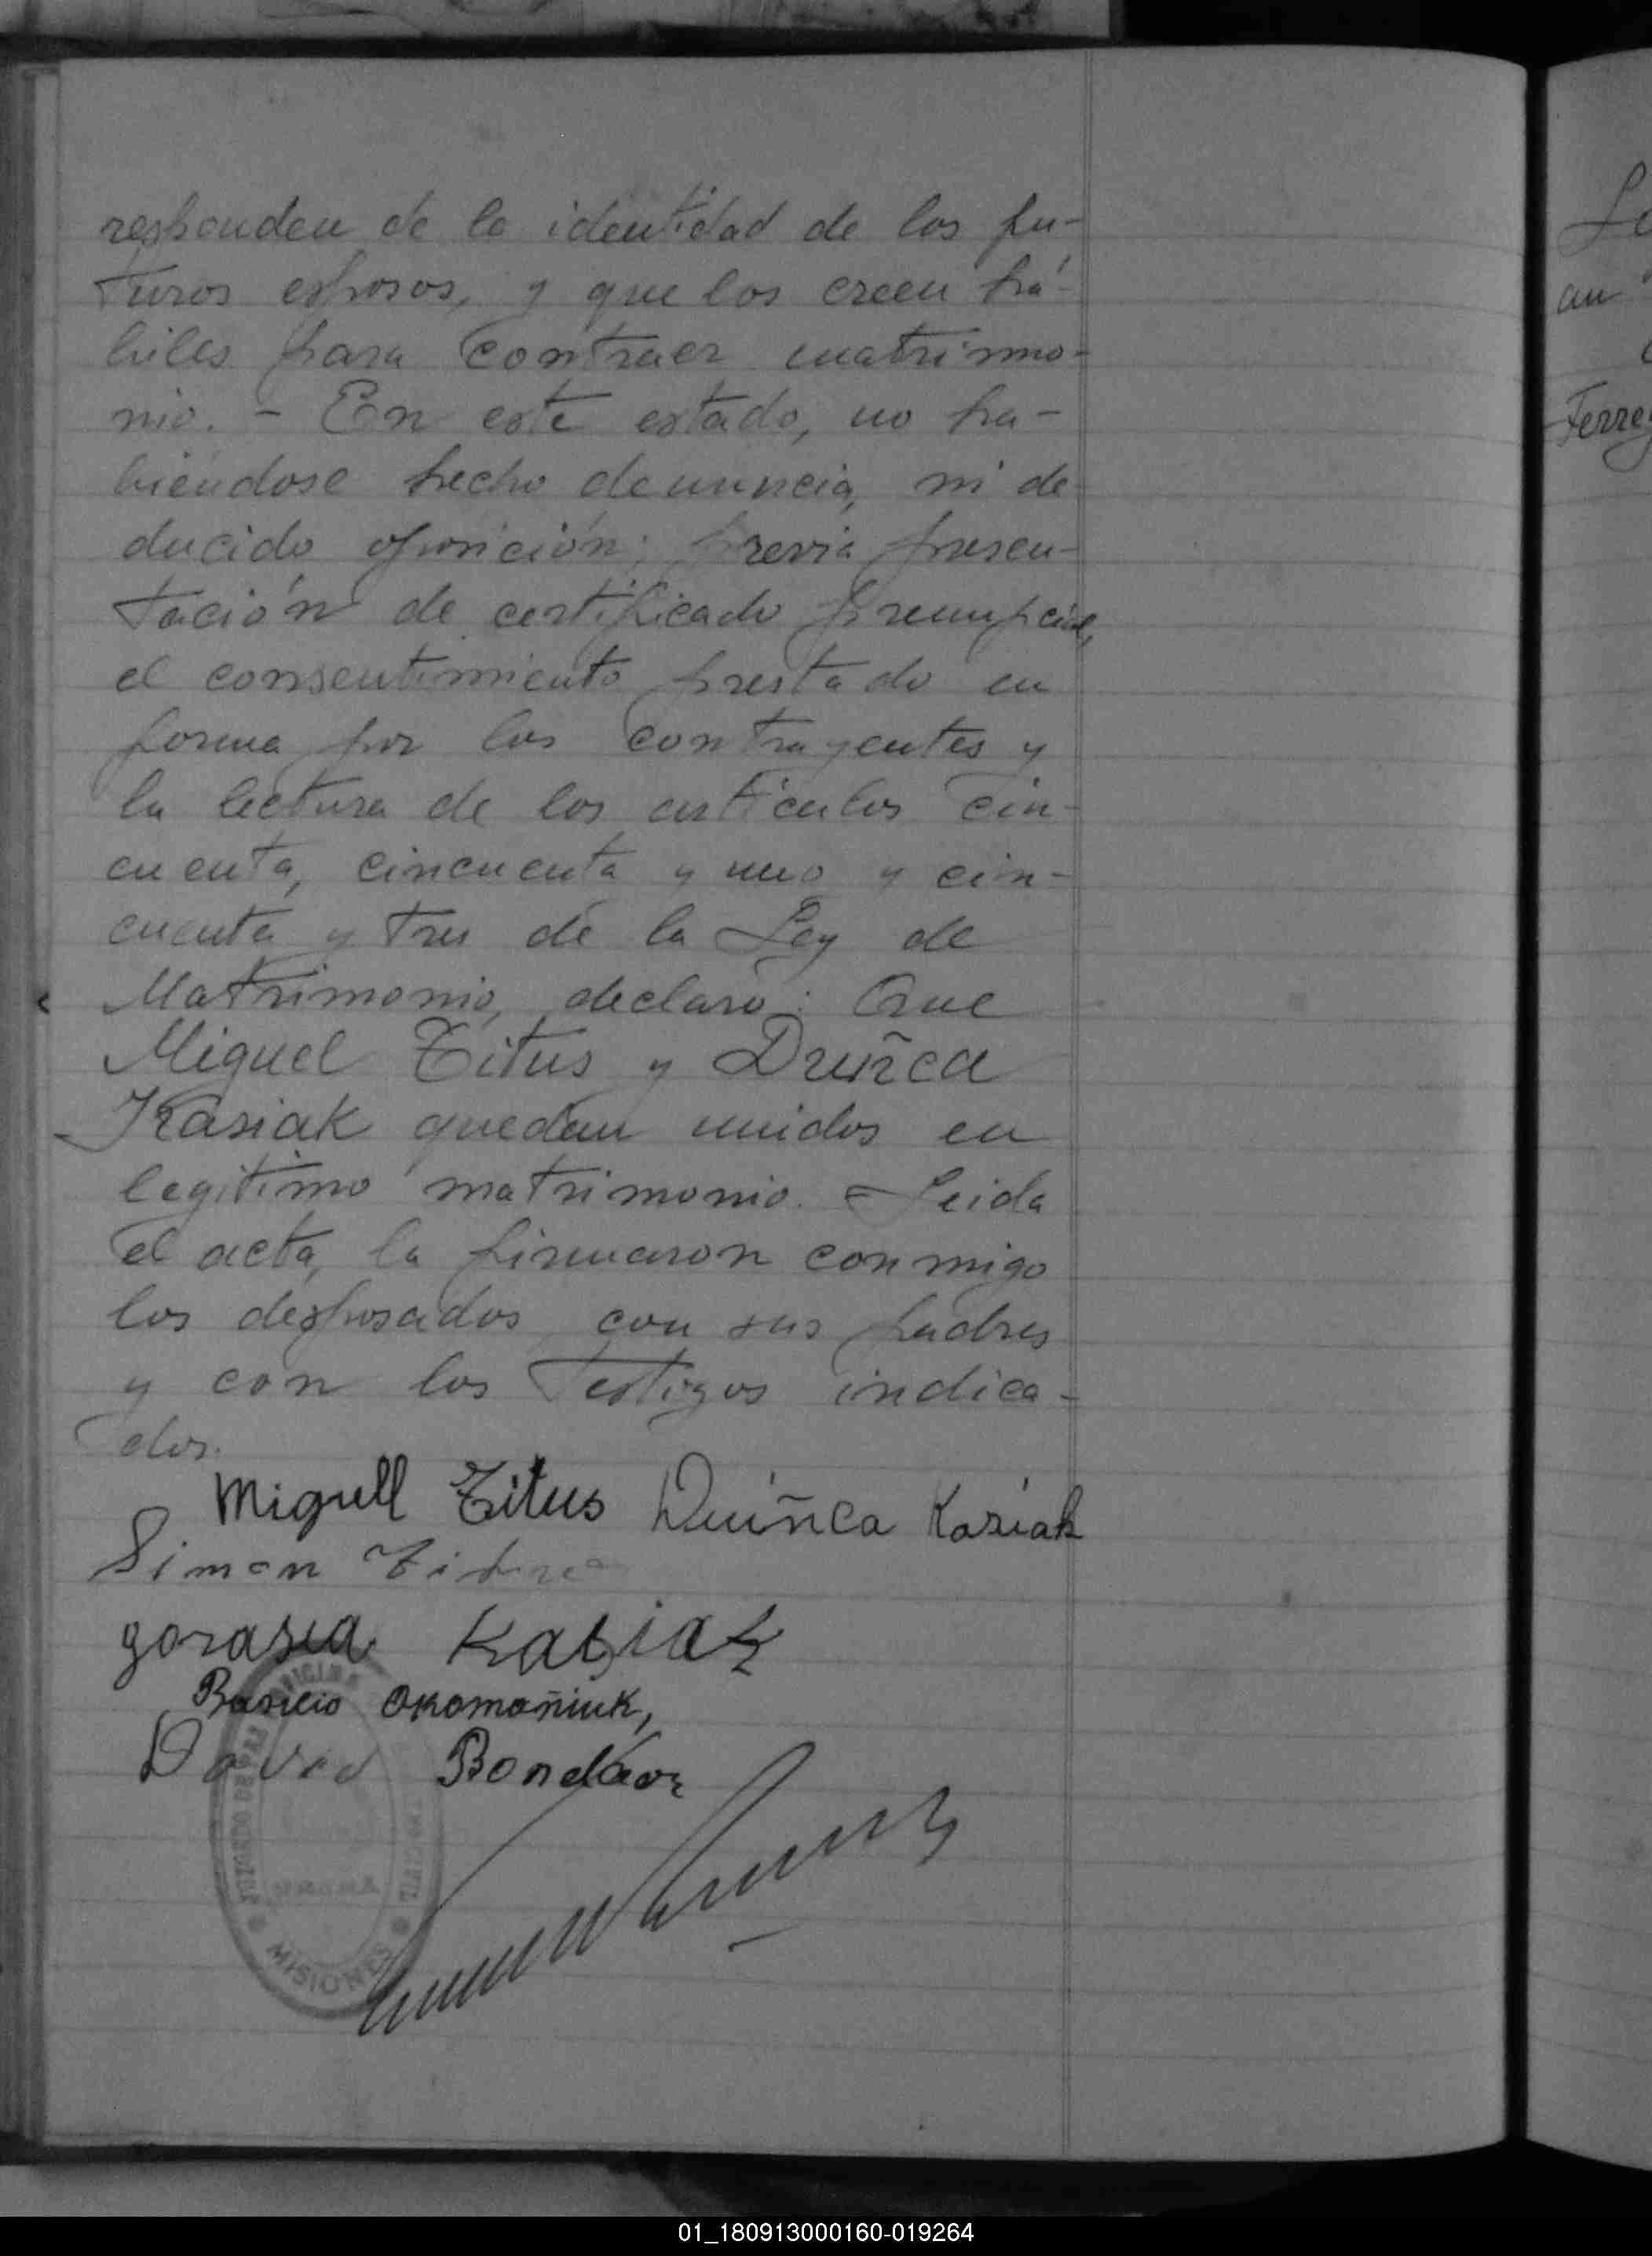 responden de la identidad de los fu-
turos esposos, y que los creen há-
biles para contraer matrimo-
nio. - En este estado, no ha-
biéndose hecho denuncia, ni de
ducido oposición; previa presen-
tación de certificado prenupcial,
el consentimiento prestado en
forma por los contrayentes y
la lectura de los artículos cin-
cuenta, cincuenta y uno y cin-
cuenta y tres de la Ley de
Matrimonio, declaro: Que
Miguel Titus y Druñca
Kasiak quedan unidos en
legitimo matrimonio. - Leida
el acta, la firmaron conmigo
los desposados, con sus padres
y con los testigos indica-
dos.
Miguell Titus Duiñca Kasiak
Simon
gorasia Kasiak
Basilio Okomañiuk,
David Bondar
OFICINA
CIVIL
MISIONES
an
Ferre
01_180913000160-019264